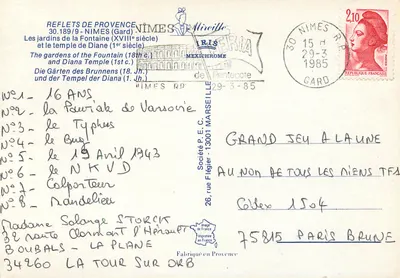 REFLETS DE PROVENCE
30.189/9 - NIMES (Gard)
Les jardins de la Fontaine (XVIIIe siècle)
et le temple de Diane (1er siècle).
The gardens of the Fountain (18th c.)
and Diana Temple (1st c.)
Die Gärten des Brunnens (18. Jh.)
und der Tempel der Diana (1. Jh.)
NIMES
Mireille
IRIS
MEXICHROME
de Pentecote
NIMES RP
29-3-85
30 NIMES R.P.
15 H
29-3
1985
GARD
2,10
REPUBLIQUE FRANÇAISE
Société P.E.C.
26, rue Ft-Régier - 13001 MARSEILLE
N°1 - 16 ANS
N°2 - La Pouriak de Varsovie
N°3 - le Typhus
N°4 - le Bug
N°5 - le 19 Avril 1943
N°6 - le NKVD
N°7 - Colporteur
N°8 - Mandelieu
Madame Solange STORCK
32 route Clermont l'Hérault
BOUBALS - LA PLANE
34260 LA TOUR SUR ORB
GRAND JEU A LA UNE
AU NON DE TOUS LES MIENS TF1
Cedex 1504
75815 PARIS BRUNE
Fabriqué en Provence